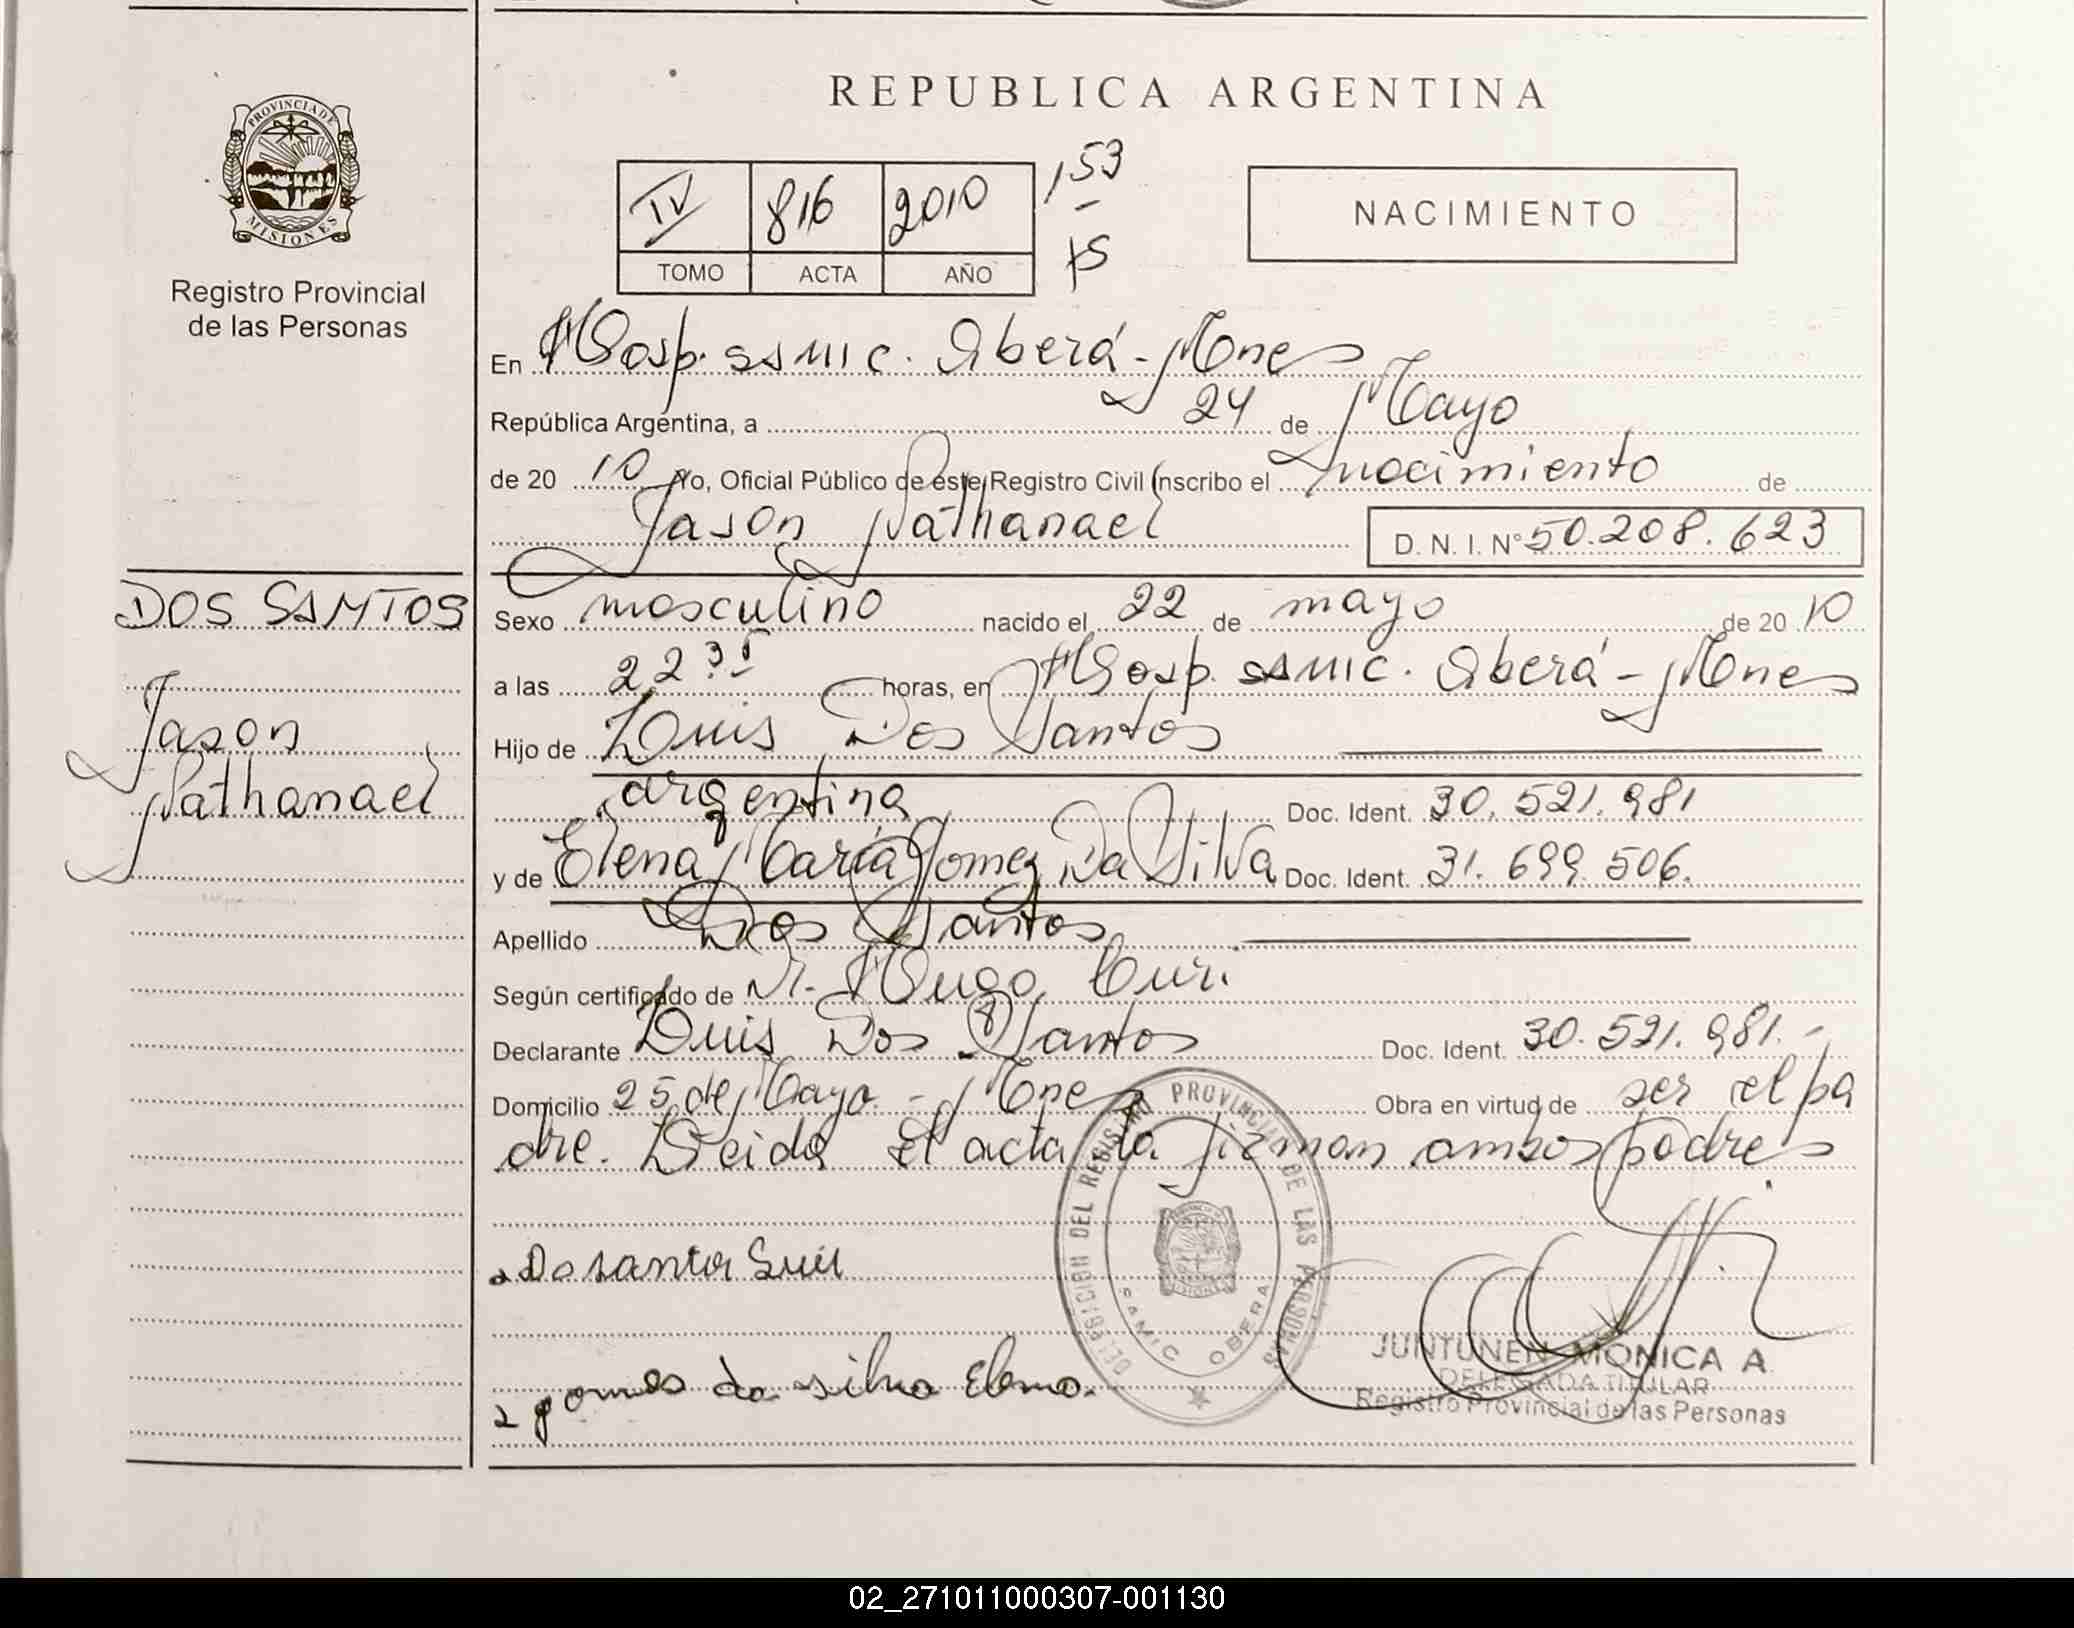 REPUBLICA ARGENTINA
PROVINCIA DE
MISIONES
Registro Provincial
de las Personas
IV 816 2010 153
TOMO ACTA AÑO 15
NACIMIENTO
En Hosp. SAMIC. Oberá - Mnes
República Argentina, a 24 de Mayo
de 20 10 Yo, Oficial Público de este Registro Civil inscribo el nacimiento de
Jason Nathanael D. N. I. N° 50.208.623
DOS SANTOS
Jason
Nathanael
Sexo masculino nacido el 22 de mayo de 20 10
a las 22 35 horas, en Hosp. SAMIC. Oberá - Mnes
Hijo de Luis Dos Santos
argentina Doc. Ident. 30.521.981
y de Elena María Gomez Da Silva Doc. Ident. 31.699.506.
Apellido Dos Santos
Según certificado de Dr. Hugo Curi.
Declarante Luis Dos Santos Doc. Ident. 30.521.981.-
Domicilio 25 de Mayo - Mnes Obra en virtud de ser el pa
dre. Leida el acta la firman ambos padres
Dosantos Luis
gomes da silva Elena.
DELEGACION DEL REGISTRO PROVINCIAL DE LAS PERSONAS
SAMIC OBERA
JUNTUNEN MONICA A.
DELEGADA TITULAR
Registro Provincial de las Personas
02_271011000307-001130